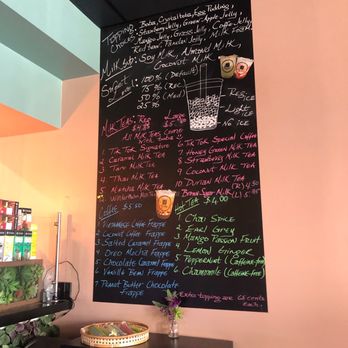 Topping Choices: Boba, Crystal boba, Egg Pudding,
Strawberry Jelly, Green Apple Jelly,
Mango Jelly, Grass Jelly, Coffee Jelly,
Red bean, Jelly, Milk Foam
Milk Sub: Soy Milk, Almond Milk,
Coconut Milk
Sugar Level:
100% (Default)
75% (Rec)
50% (Med)
25%
Reg ICE
Light ICE
No ICE
Milk Tea: Reg Large
All Milk Teas Come
With boba
1 Tik Tok Signature
2 Caramel Milk Tea
3 Taro Milk Tea
4 Thai Milk Tea
5 Matcha Milk Tea
6 Tik Tok Special Coffee
7 Honey Green Milk Tea
8 Strawberry Milk Tea
9 Coconut Milk Tea
10 Durian Milk Tea
Brown Sugar Milk
(R) 4.50
(L) 5.50
Coffee $5.50
1 Vietnamese Coffee Frappe
2 Coconut Coffee Frappe
3 Salted Caramel Frappe
4 Oreo Mocha Frappe
5 Chocolate Caramel Frappe
6 Vanilla Bean Frappe
7 Peanut Butter Chocolate
Frappe
Hot Tea $4.00
1 Chai Spice
2 Earl Grey
3 Mango Passion Fruit
4 Lemon Ginger
5 Peppermint (Caffeine-free)
6 Chamomile (Caffeine-free)
Extra topping are cents
each.